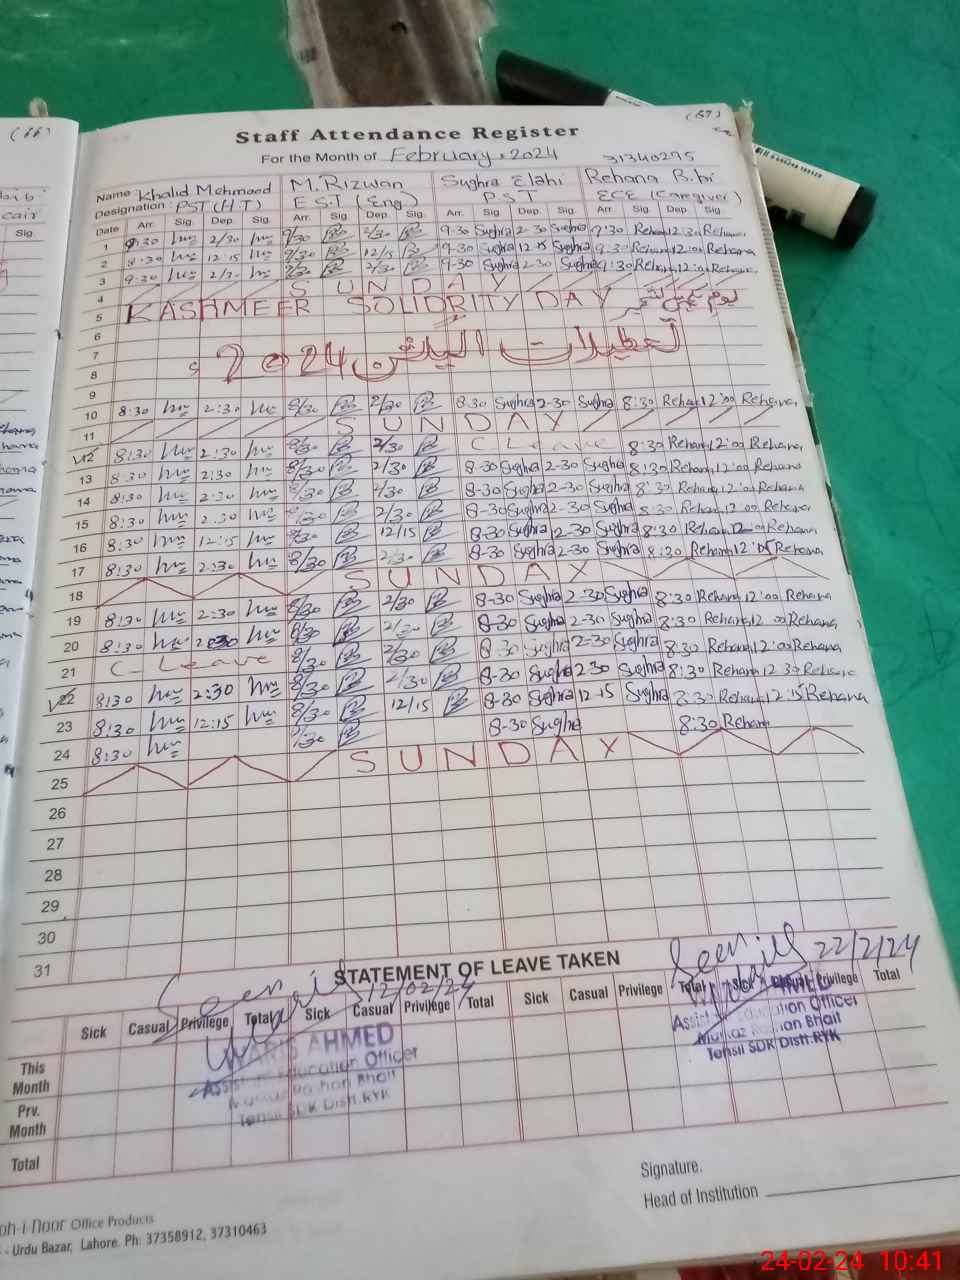 (66)
(67)
Staff Attendance Register
For the Month of February, 2024 31340295
Name Khalid Mehmood M. Rizwan Sughra Elahi Rehana Bibi
Designation PST (H.T) E.S.T (Eng) P.S.T ECE (Caregiver)
Date Arr. Sig. Dep. Sig. Arr. Sig. Dep. Sig. Arr. Sig. Dep. Sig. Arr. Sig. Dep. Sig.
1 9:30 2/30 9/30 2/30 9-30 Sughra 2-30 Sughra 9:30 Rehana 12:30 Rehana
2 8:30 12:15 12/15 9-30 Sughra 12-15 Sughra 9:30 Rehana 12:00 Rehana
3 9:30 2/30 9/30 2/30 9-30 Sughra 2-30 Sughra 9:30 Rehana 12:00 Rehana
4 SUNDAY
5 KASHMEER SOLIDRITY DAY یوم
6
7 2024 تعطیلات الیکشن
8
9
10 8:30 2:30 8/30 2/30 8-30 Sughra 2-30 Sughra 8:30 Rehana 12:00 Rehana
11 SUNDAY
12 8:30 2:30 8/30 2/30 C Leave 8:30 Rehana 12:00 Rehana
13 8:30 2:30 8/30 2/30 8-30 Sughra 2-30 Sughra 8:30 Rehana 12:00 Rehana
14 8:30 2:30 8/30 2/30 8-30 Sughra 2-30 Sughra 8:30 Rehana 12:00 Rehana
15 8:30 2:30 8/30 2/30 8-30 Sughra 2-30 Sughra 8:30 Rehana 12:00 Rehana
16 8:30 12:15 8/30 12/15 8-30 Sughra 2-30 Sughra 8:30 Rehana 12:00 Rehana
17 8:30 2:30 8/30 2/30 8-30 Sughra 2-30 Sughra 8:30 Rehana Rehana
18 SUNDAY
19 8:30 2:30 8/30 2/30 8-30 Sughra 2-30 Sughra 8:30 Rehana 12:00 Rehana
20 8:30 8/30 2/30 8-30 Sughra 2-30 Sughra 8:30 Rehana 12:00 Rehana
21 C_Leave 8/30 2/30 8-30 Sughra 2-30 Sughra 8:30 Rehana 12:00 Rehana
22 8:30 2:30 8/30 2/30 8-30 Sughra 2-30 Sughra 8:30 Rehana 12:30 Rehana
23 8:30 12:15 8/30 12/15 8-30 Sughra 12-15 Sughra 8:30 Rehana 12:15 Rehana
24 8:30 8/30 8-30 Sughra 8:30 Rehana
25 SUNDAY
26
27
28
29
30
31
STATEMENT OF LEAVE TAKEN
Seen
12/02/24
Seen
22/2/24
Sick Casual Privilege Total Sick Casual Privilege Total Sick Casual Privilege Total Sick Casual Privilege Total
WARIS AHMED
Assistant Education Officer
Tehsil SDK Distt.RYK
Assistant Education Officer
Tehsil SDK Distt.RYK
This Month
Prv. Month
Total
Signature.
Head of Institution
oh-i-noor Office Products
- Urdu Bazar, Lahore. Ph: 37358912, 37310463
24-02-24 10:41